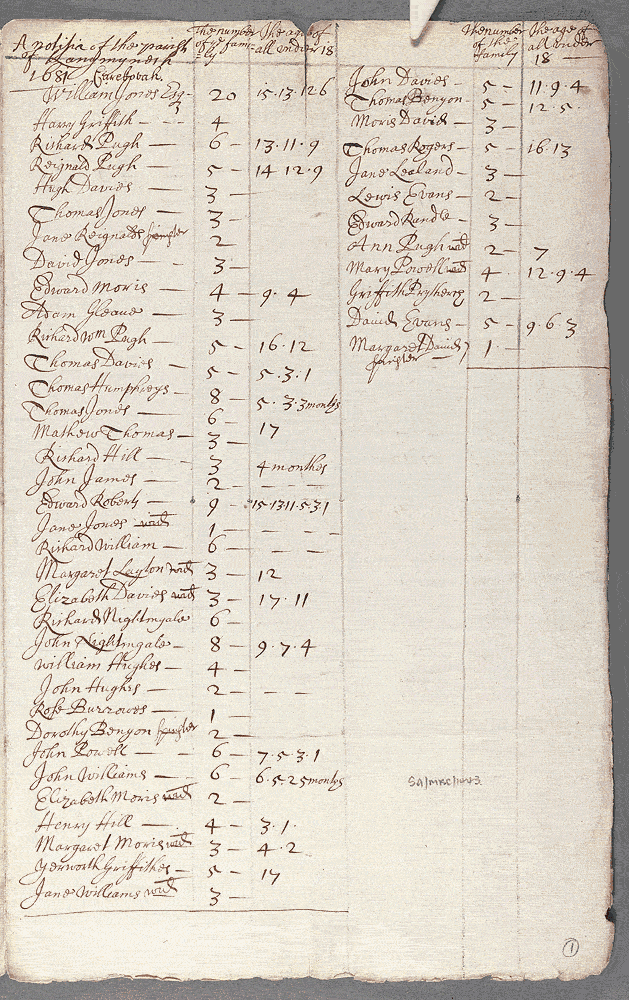 A notitia of the parish
of Llanymynech
1681 Carreghova.
The number of ye family
The age of all under 18
William Jones Esq 20 15·13·12 6
Harry Griffith 4
Richard Pugh 6 13·11·9
Reignald Pugh 5 14 12·9
Hugh Davies 3
Thomas Jones 3
Jane Reignalds spinster 2
David Jones 3
Edward Moris 4 9·4
Adam Gleave 3
Richard Wm Pugh 5 16·12
Thomas Davies 5 5·3·1
Thomas Humphreys 8 5·3·3 months
Thomas Jones 6
Mathew Thomas 3 17
Richard Hill 3 4 monthes
John James 2
Edward Roberts 9 15·13 11·5·3 1
Jane Jones wid 1
Richard William 6
Margaret Layton wid 3 12
Elizabeth Davies wid 3 17·11
Richard Nightingale 6
John Nightingale 8 9·7·4
William Hughes 4
John Hughes 2
Rose Burrowes 1
Dorothy Benyon spinster 2
John Powell 6 7·5·3·1
John Williams 6 6·5·2 5 months
Elizabeth Moris wid 2
Henry Hill 4 3·1·
Margaret Moris wid 3 4·2
Yerworth Griffithes 5 17
Jane Williams wid 3
The number of the family
The age of all under 18
John Davies 5 11·9·4
Thomas Benyon 5 12·5·
Moris David 3
Thomas Rogers 5 16·13
Jane Lealand 3
Lewis Evans 2
Edward Randle 3
Ann Pugh wid 2 7
Mary Powell wid 4 12·9·4
Griffith Prytherch 2
David Evans 5 9·6·3
Margaret David spinster 1
1